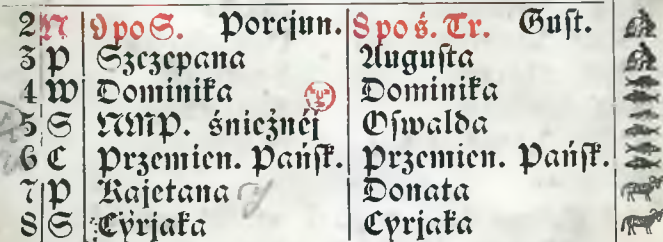 2 N 9 po S. Porcjun. 8 po ś. Tr. Gust.
3 P Szczepana Augusta
4 W Dominika Dominika
5 S NMP. śnieżnéj Oswalda
6 C Przemien. Pańsk. Przemien. Pańsk.
7 P Kajetana Donata
8 S Cyrjaka Cyrjaka